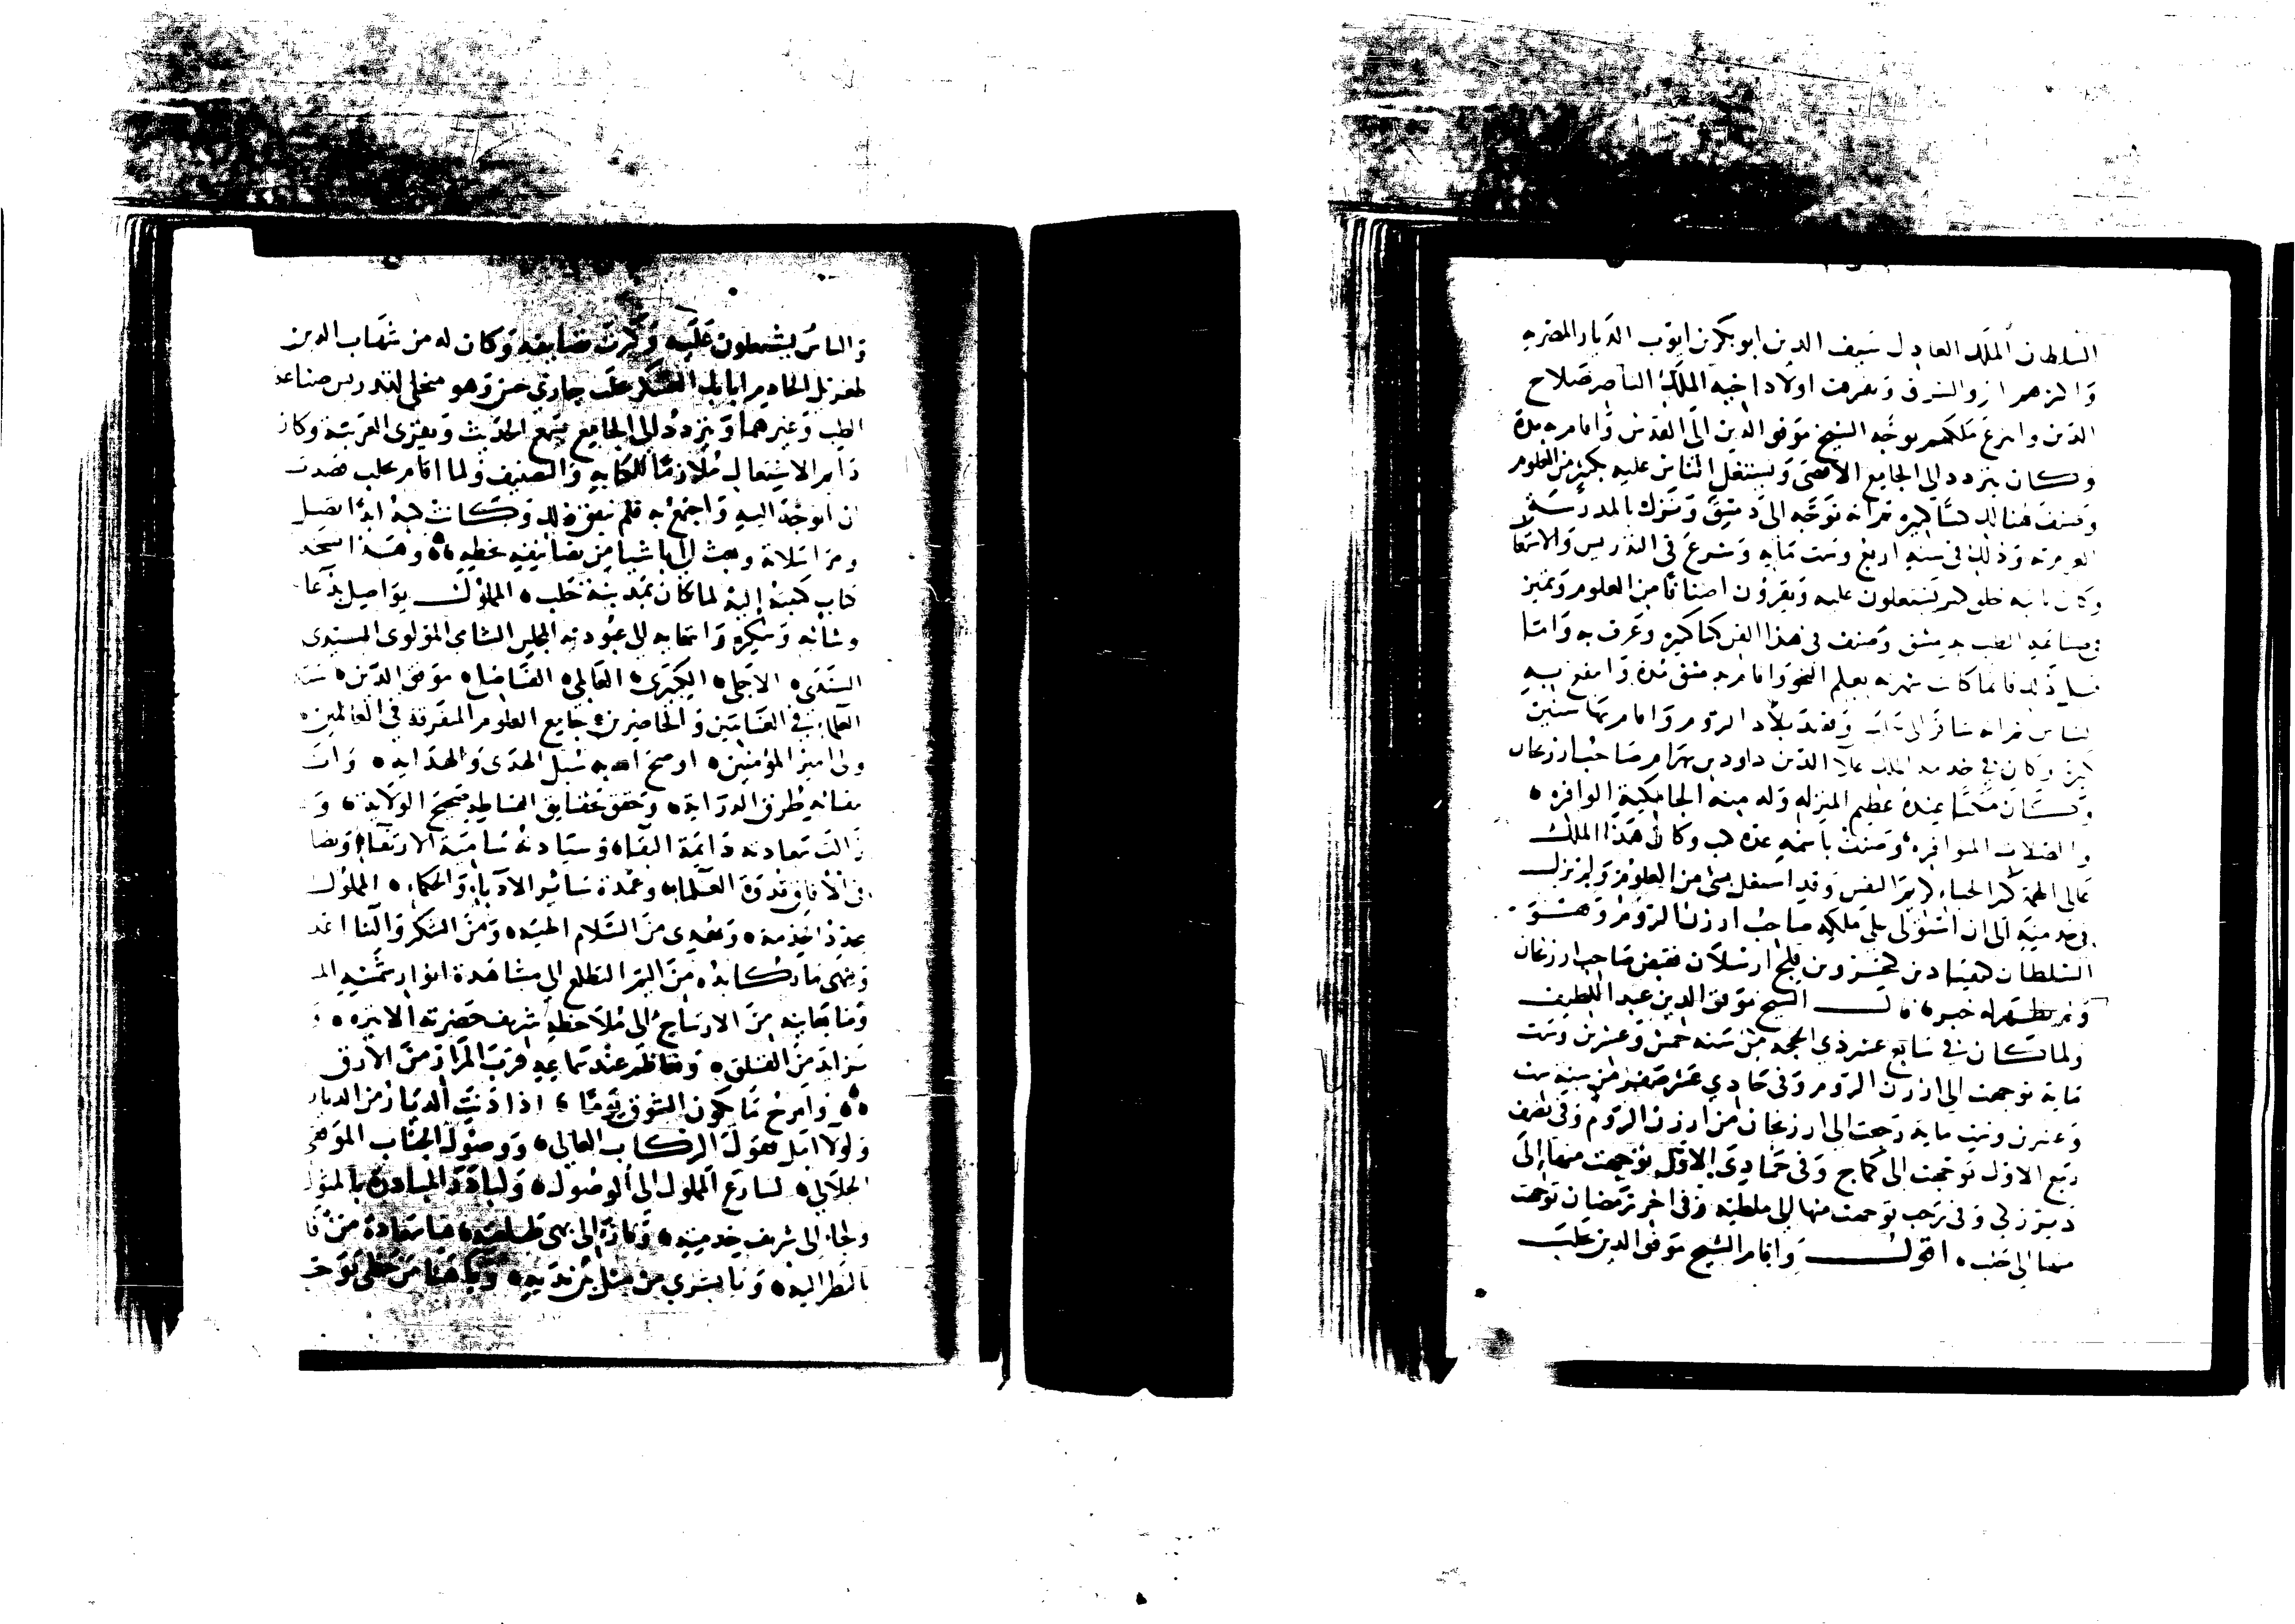 السلطان الملك العادل سيف الدين ابو بكر بن ايوب الديار المصريه
والشرق وتفرقت اولاد اخيه الملك الناصر صلاح
الدين وانتزع ملكهم توجه الشيخ موفق الدين الى القدس واقام به مدة
وكان يتردد الى الجامع الاقصى ويشتغل الناس عليه بكثير من العلوم
وصنف هنالك كتبا كثيره ثم انه توجه الى دمشق ونزل بالمدرسة
العزيزيه وذلك في سنه اربع وستمايه وشرع في التدريس والاشتغال
وكان ياتيه خلق كثير يشتغلون عليه ويقرؤن اصنافا من العلوم وتميز
في صناعة الطب بدمشق وصنف في هذا الفن كتبا كثيره وعرف به واما
قبل ذلك فانما كانت شهرته بعلم النحو واقام بدمشق مدة وانتفع به
الناس ثم انه سافر الى حلب وقصد بلاد الروم واقام بها سنين
كثيرة وكان في خدمه الملك علا الدين داود بن بهرام صاحب ارزنجان
وكان مكينا عنده عظيم المنزله وله منه الجامكية الوافره
والصلات المتواتره وصنف باسمه عدة كتب وكان هذا الملك
عالى الهمة كثير الحياء كريم النفس وقد اشتغل بشى من العلوم ولم يزل
في خدمته الى ان استولى على ملكه صاحب ارزن الروم وهو
السلطان كيقباد بن كيخسرو بن قلج ارسلان فقبض صاحب ارزنجان
ولم يظهر له خبر قال الشيخ موفق الدين عبد اللطيف
ولما كان في سابع عشر ذي الحجه من سنه خمس وعشرين وست
مايه توجهت الى ارزن الروم وفي حادي عشر صفر من سنه ست
وعشرين وست مايه رجعت الى ارزنجان من ارزن الروم وفي نصف
ربيع الاول توجهت الى كماخ وفي جمادى الاولى توجهت منها الى
دبركي وفي رجب توجهت منها الى ملطيه وفي اخر رمضان توجهت
منها الى حلب اقول واقام الشيخ موفق الدين بحلب
والناس يشتغلون عليه وكثرت تصانيفه وكان له من شهاب الدين
طغريل الخادم اتابك العسكر بحلب جاري حسن وهو متخلى لتدريس صناعة
الطب وغيرها ويتردد الى الجامع يسمع الحديث ويقرى العربية وكان
دايم الاشتغال ملازما للكتابه والتصنيف ولما اقام بحلب قصدت
ان اتوجه اليه واجتمع به فلم يتفق ذلك وكانت كتبه ابدا تصل
ومراسلاته وبعث الى باشيا من تصانيفه بخطه وهذا نسخة
كتاب كتبته اليه لما كان بمدينة حلب المملوك يواصل بدعائه
وثنائه وشكره وانتمايه الى عبوديه المجلس السامى المولوى السيدى
السندى الاجلى الكبيرى العالمى الفاضلى موفق الدين سيد
العلماء في الغابرين والحاضرين جامع العلوم المتفرقة في العالمين
ولى امير المؤمنين اوضح الله به سبل الهدى والهدايه وانار
ببقائه طرق الدرايه وحقق بحقايق الفاظه صحيح الولاية ولا
زالت سعادته دائمة البقاء وسيادته سامية الارتقاء وتصانيفه
في الافاق قدوة العلماء وعمدة سائر الادباء والحكماء المملوك
يجدد الخدمة ويهدى من السلام اطيبه ومن الشكر والثنا اعذبه
وينهى ما يكابده من اليم التطلع الى مشاهدة انوار شمسه
وما يعاينه من الارتياح الى ملاحظه شريف حضرته الاثيره وما
تزايد من القلق وتعاظم عند سماعه قرب المزار من الارق
وابرح ما يكون الشوق يوما اذا دنت الديار من الديار
ولولا امل قفول الركاب العالى ووصول الجناب الموفقى
الجلالى لسارع المملوك الى الوصول ولبادر المبادرة بالمثول
ولجاء الى شريف خدمته وفاز الى بهى طلعته فيا سعادة من فاز
بالنظر اليه ويا بشرى من مثل بين يديه ويا هنا من حظى بوجه